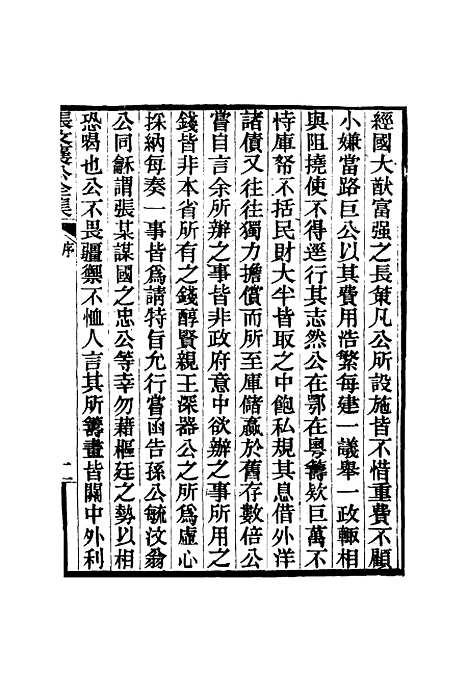 經國大猷富强之長策凡公所設施皆不惜重費不顧
小嫌當路巨公以其費用浩繁每建一議舉一政輒相
與阻撓使不得逕行其志然公在鄂在粤籌欵巨萬不
恃庫帑不括民財大半皆取之中飽私規其息借外洋
諸債又往往獨力擔償而所至庫儲贏於舊存數倍公
嘗自言余所辦之事皆非政府意中欲辦之事所用之
錢皆非本省所有之錢醇賢親王深器公之所爲虛心
採納每奏一事皆爲請特旨允行嘗函告孫公毓汶翁
公同龢謂張某謀國之忠公等幸勿藉樞廷之勢以相
恐喝也公不畏疆禦不恤人言其所籌畫皆關中外利
張文襄公全集 序 二